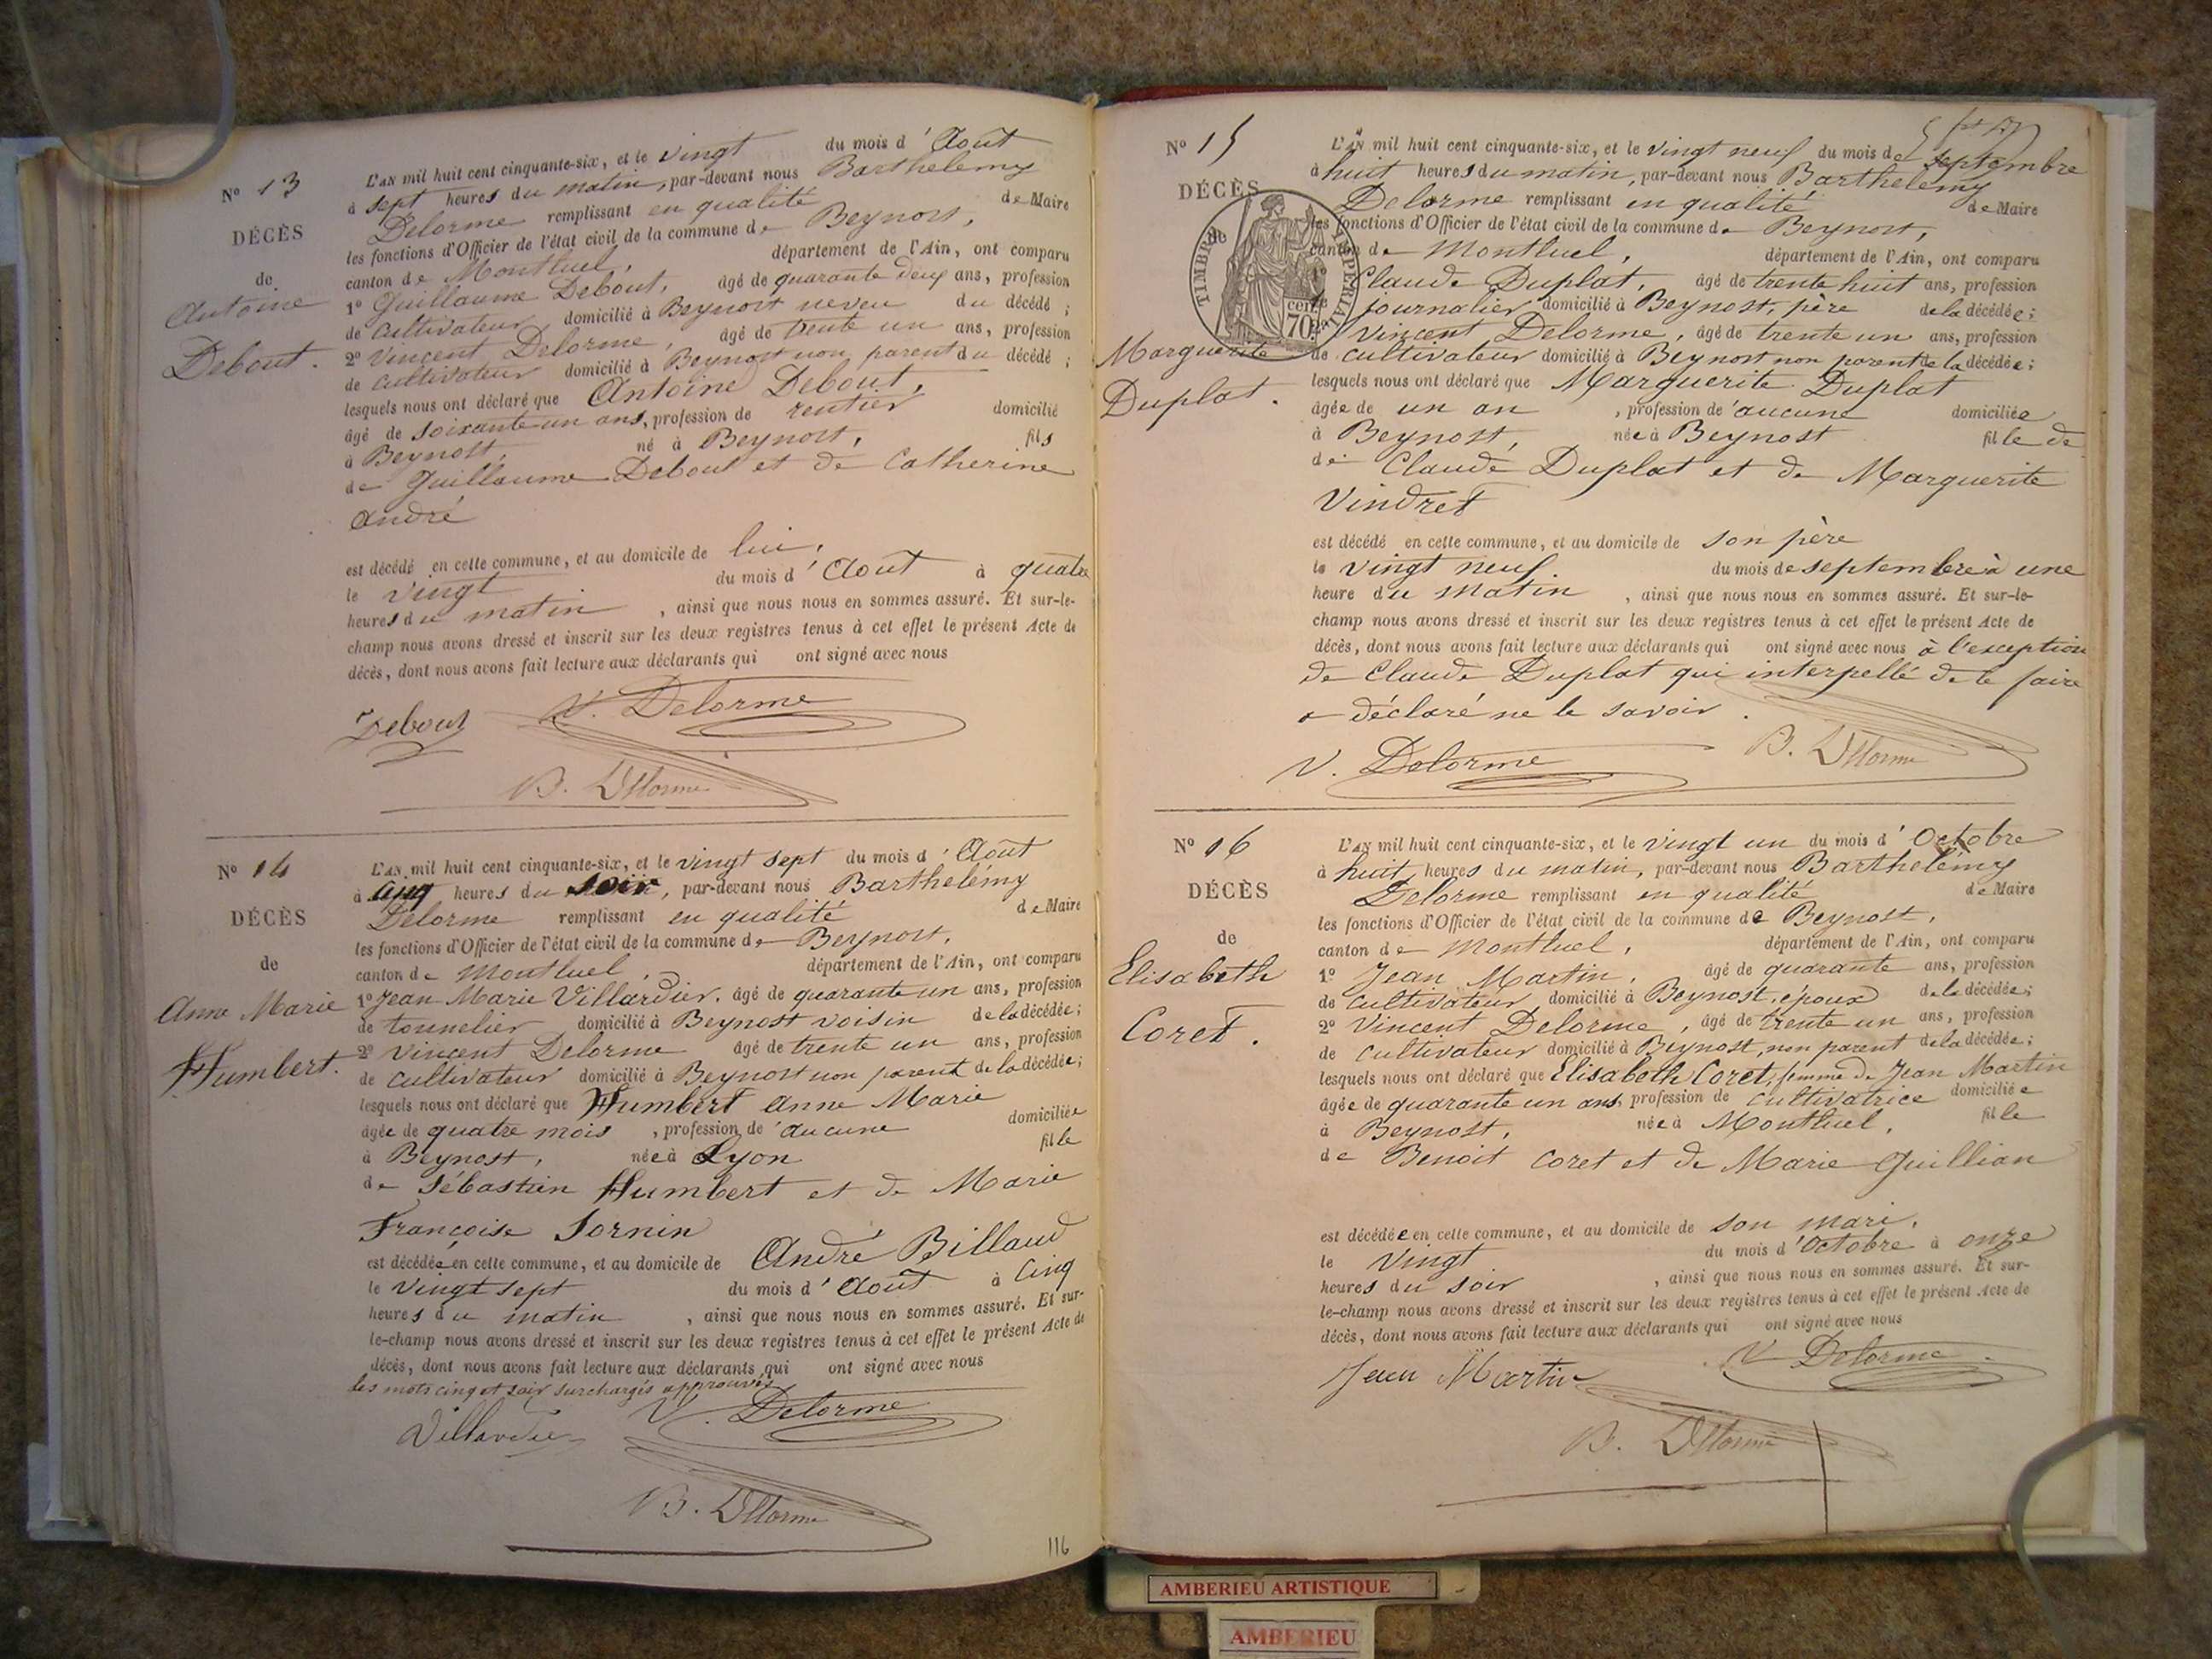 N° 13
DÉCÈS
de
Antoine
Debout.
L'AN mil huit cent cinquante-six, et le vingt du mois d'Août
à sept heures du matin, par-devant nous Barthelemy
Delorme remplissant en qualité de Maire
les fonctions d'Officier de l'état civil de la commune de Beynost,
canton de Montluel, département de l'Ain, ont comparu
1° Guillaume Debout, âgé de quarante deux ans, profession
de cultivateur domicilié à Beynost neveu du décédé ;
2° Vincent Delorme, âgé de trente un ans, profession
de cultivateur domicilié à Beynost non parent du décédé ;
lesquels nous ont déclaré que Antoine Debout,
âgé de soixante un ans, profession de rentier domicilié
à Beynost, né à Beynost, fils
de Guillaume Debout et de Catherine
André
est décédé en cette commune, et au domicile de lui,
le vingt du mois d'Août à quatre
heures du matin, ainsi que nous nous en sommes assuré. Et sur-le-
champ nous avons dressé et inscrit sur les deux registres tenus à cet effet le présent Acte de
décès, dont nous avons fait lecture aux déclarants qui ont signé avec nous
Debout V. Delorme
B. Delorme
N° 14
DÉCÈS
de
Anne Marie
Humbert.
L'AN mil huit cent cinquante-six, et le vingt sept du mois d'Août
à cinq heures du soir, par-devant nous Barthelémy
Delorme remplissant en qualité de Maire
les fonctions d'Officier de l'état civil de la commune de Beynost,
canton de Montluel, département de l'Ain, ont comparu
1° Jean Marie Villardier, âgé de quarante un ans, profession
de tonnelier domicilié à Beynost voisin de la décédée ;
2° Vincent Delorme âgé de trente un ans, profession
de cultivateur domicilié à Beynost non parent de la décédée ;
lesquels nous ont déclaré que Humbert Anne Marie
âgée de quatre mois, profession d'aucune domiciliée
à Beynost, née à Lyon fille
de Sébastien Humbert et de Marie
Françoise Sornin
est décédée en cette commune, et au domicile de André Billaud
le vingt sept du mois d'Août à cinq
heures du matin, ainsi que nous nous en sommes assuré. Et sur-
le-champ nous avons dressé et inscrit sur les deux registres tenus à cet effet le présent Acte de
décès, dont nous avons fait lecture aux déclarants qui ont signé avec nous
les mots cinq et soir surchargés approuvés
Villardier V. Delorme
B. Delorme
116
N° 15
DÉCÈS
de
TIMBRE IMPÉRIAL
70 cent.
Marguerite
Duplat.
L'AN mil huit cent cinquante-six, et le vingt neuf du mois de septembre
à huit heures du matin, par-devant nous Barthelemy
Delorme remplissant en qualité de Maire
les fonctions d'Officier de l'état civil de la commune de Beynost,
canton de Montluel, département de l'Ain, ont comparu
1° Claude Duplat, âgé de trente huit ans, profession
journalier domicilié à Beynost, père de la décédée ;
Vincent Delorme, âgé de trente un ans, profession
de cultivateur domicilié à Beynost non parent de la décédée ;
lesquels nous ont déclaré que Marguerite Duplat
âgée de un an, profession de aucune domiciliée
à Beynost, née à Beynost fille de
de Claude Duplat et de Marguerite
Vindret
est décédé en cette commune, et au domicile de son père
le vingt neuf du mois de septembre à une
heure du matin, ainsi que nous nous en sommes assuré. Et sur-le-
champ nous avons dressé et inscrit sur les deux registres tenus à cet effet le présent Acte de
décès, dont nous avons fait lecture aux déclarants qui ont signé avec nous à l'exception
de Claude Duplat qui interpellé de le faire
a déclaré ne le savoir.
V. Delorme B. Delorme
N° 16
DÉCÈS
de
Elisabeth
Coret.
L'AN mil huit cent cinquante-six, et le vingt un du mois d'Octobre
à huit heures du matin, par-devant nous Barthélémy
Delorme remplissant en qualité de Maire
les fonctions d'Officier de l'état civil de la commune de Beynost,
canton de Montluel, département de l'Ain, ont comparu
1° Jean Martin, âgé de quarante ans, profession
de cultivateur domicilié à Beynost, époux de la décédée ;
2° Vincent Delorme, âgé de trente un ans, profession
de cultivateur domicilié à Beynost, non parent de la décédée ;
lesquels nous ont déclaré que Elisabeth Coret, femme de Jean Martin
âgée de quarante un ans, profession de cultivatrice domiciliée
à Beynost, née à Montluel, fille
de Benoit Coret et de Marie Guillian
est décédée en cette commune, et au domicile de son mari,
le vingt du mois d'Octobre à onze
heures du soir, ainsi que nous nous en sommes assuré. Et sur-
le-champ nous avons dressé et inscrit sur les deux registres tenus à cet effet le présent Acte de
décès, dont nous avons fait lecture aux déclarants qui ont signé avec nous
Jean Martin V Delorme
B. Delorme
AMBERIEU ARTISTIQUE
AMBERIEU